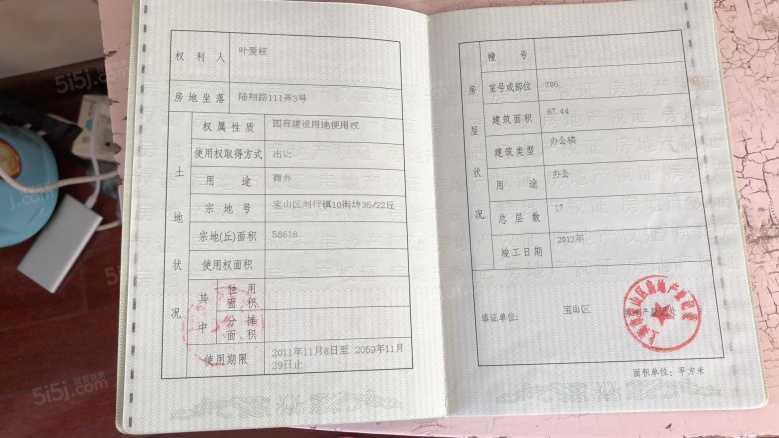 权利人 叶爱核
房地坐落 陆翔路111弄3号
土地状况
权属性质 国有建设用地使用权
使用权取得方式 出让
用途 商办
宗地号 宝山区刘行镇10街坊35/22丘
宗地(丘)面积 58618
使用权面积
其中
独用面积
分摊面积
使用期限 2011年11月8日至 2059年11月
29日止
房屋状况
幢号
室号或部位 706
建筑面积 67.44
建筑类型 办公楼
用途 办公
总层数 17
竣工日期 2012年
填证单位: 宝山区 房地产登记处
面积单位: 平方米
5i5j.com